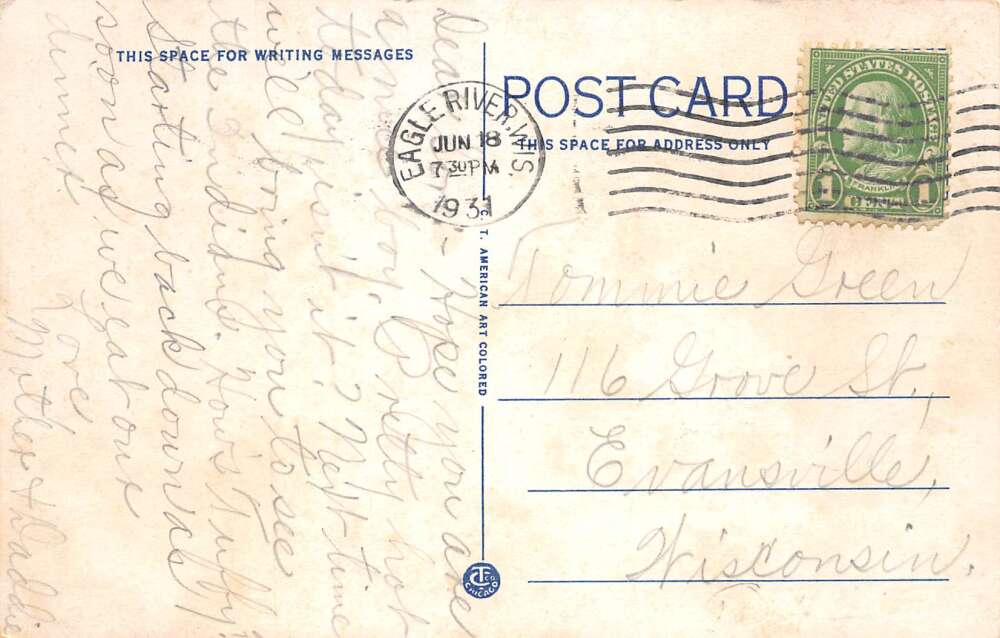 THIS SPACE FOR WRITING MESSAGES
Dear - Hope you are
a good boy. Pretty hot
today isn't it? Next time
will bring you to see
the Indians. How's Fuffy?
Starting back down as
soon as we eat our
dinner
Love
Mother & Daddie
EAGLE RIVER, WIS.
JUN 18
7 30 PM
1931
C. T. AMERICAN ART COLORED
C.T. CO. CHICAGO
POST CARD
THIS SPACE FOR ADDRESS ONLY
UNITED STATES POSTAGE
FRANKLIN
1 1
Tommie Green
116 Grove St.,
Evansville,
Wisconsin.